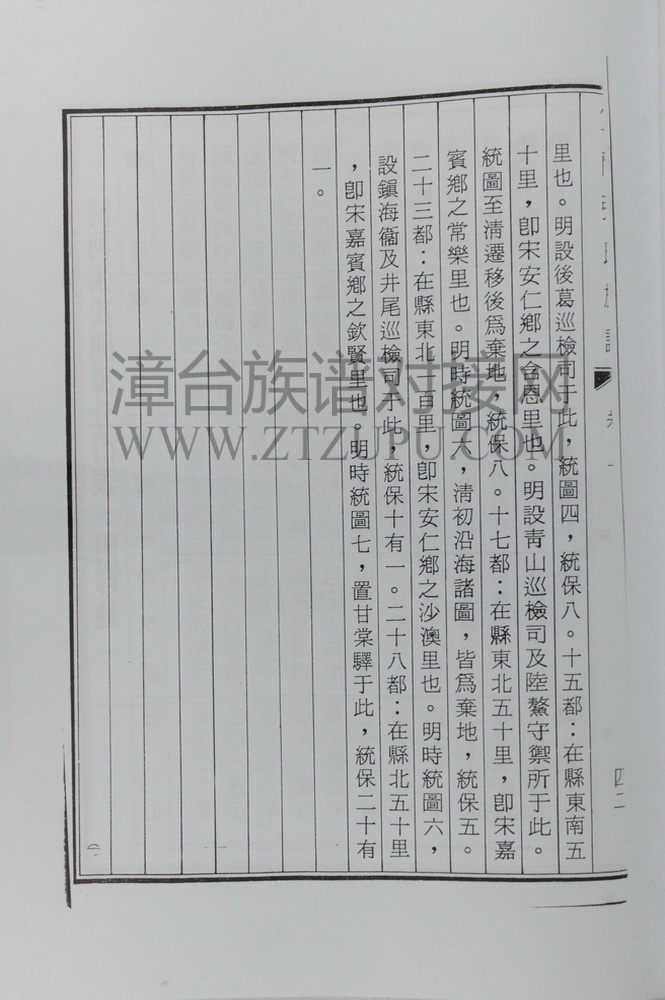 里也。明設後葛巡檢司于此，統圖四，統保八。十五都：在縣東南五
十里，卽宋安仁鄉之含恩里也。明設靑山巡檢司及陸鰲守禦所于此。
統圖至淸遷移後爲棄地，統保八。十七都：在縣東北五十里，卽宋嘉
賓鄉之常樂里也。明時統圖六，淸初沿海諸圖，皆爲棄地，統保五。
二十三都：在縣東北一百里，卽宋安仁鄉之沙澳里也。明時統圖六，
設鎭海衞及井尾巡檢司于此，統保十有一。二十八都：在縣北五十里
，卽宋嘉賓鄉之欽賢里也。明時統圖七，置甘棠驛于此，統保二十有
一。
四二
漳台族谱对接网
WWW.ZTZUPU.COM